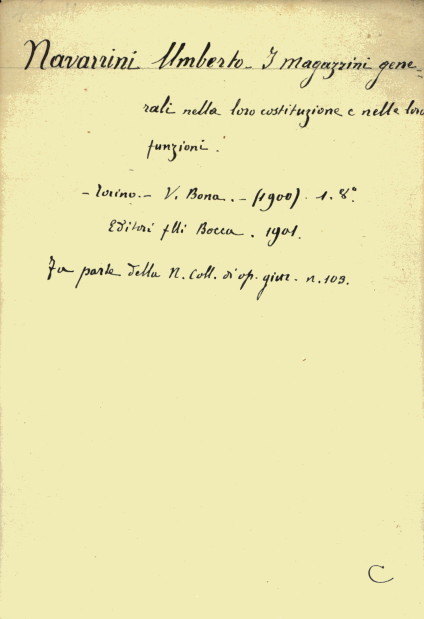 Navarrini Umberto - I magazzini gene-
rali nella loro costituzione e nelle loro
funzioni.
- Torino. - V. Bona. - (1900) . 1. 8°.
Editori flli Bocca . 1901.
Fa parte della N. Coll. di op. giur. n. 103.
C